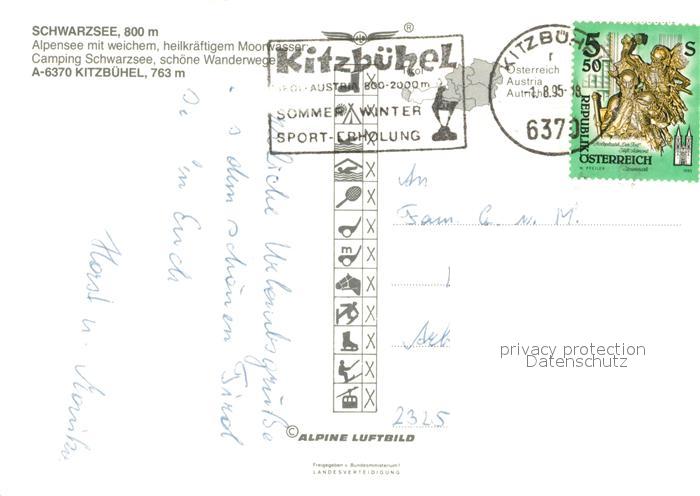 SCHWARZSEE, 800 m
Alpensee mit weichem, heilkräftigem Moorwasser.
Camping Schwarzsee, schöne Wanderwege
A-6370 KITZBÜHEL, 763 m
®
Kitzbühel
TIROL-AUSTRIA 800-2000m
SOMMER WINTER
SPORT-ERHOLUNG
Tirol
Österreich
Austria
Autriche
KITZBÜHEL
-1.8.95-18
6370
5 50 S
REPUBLIK
ÖSTERREICH
Herzliche Urlaubsgrüße
aus dem schönen Tirol
Euch
Horst u. Monika
An
Fam. C. u. M.
2325
privacy protection
Datenschutz
© ALPINE LUFTBILD
Freigegeben v. Bundesministerium f.
LANDESVERTEIDIGUNG